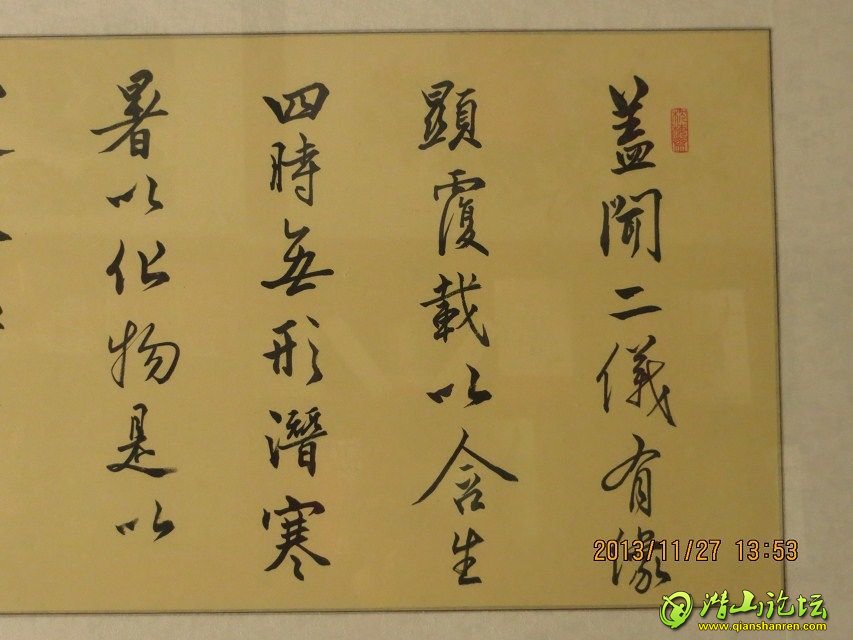 蓋聞二儀有像
顯覆載以含生
四時無形潛寒
暑以化物是以
2013/11/27 13:53
潜山论坛
www.qianshanren.com